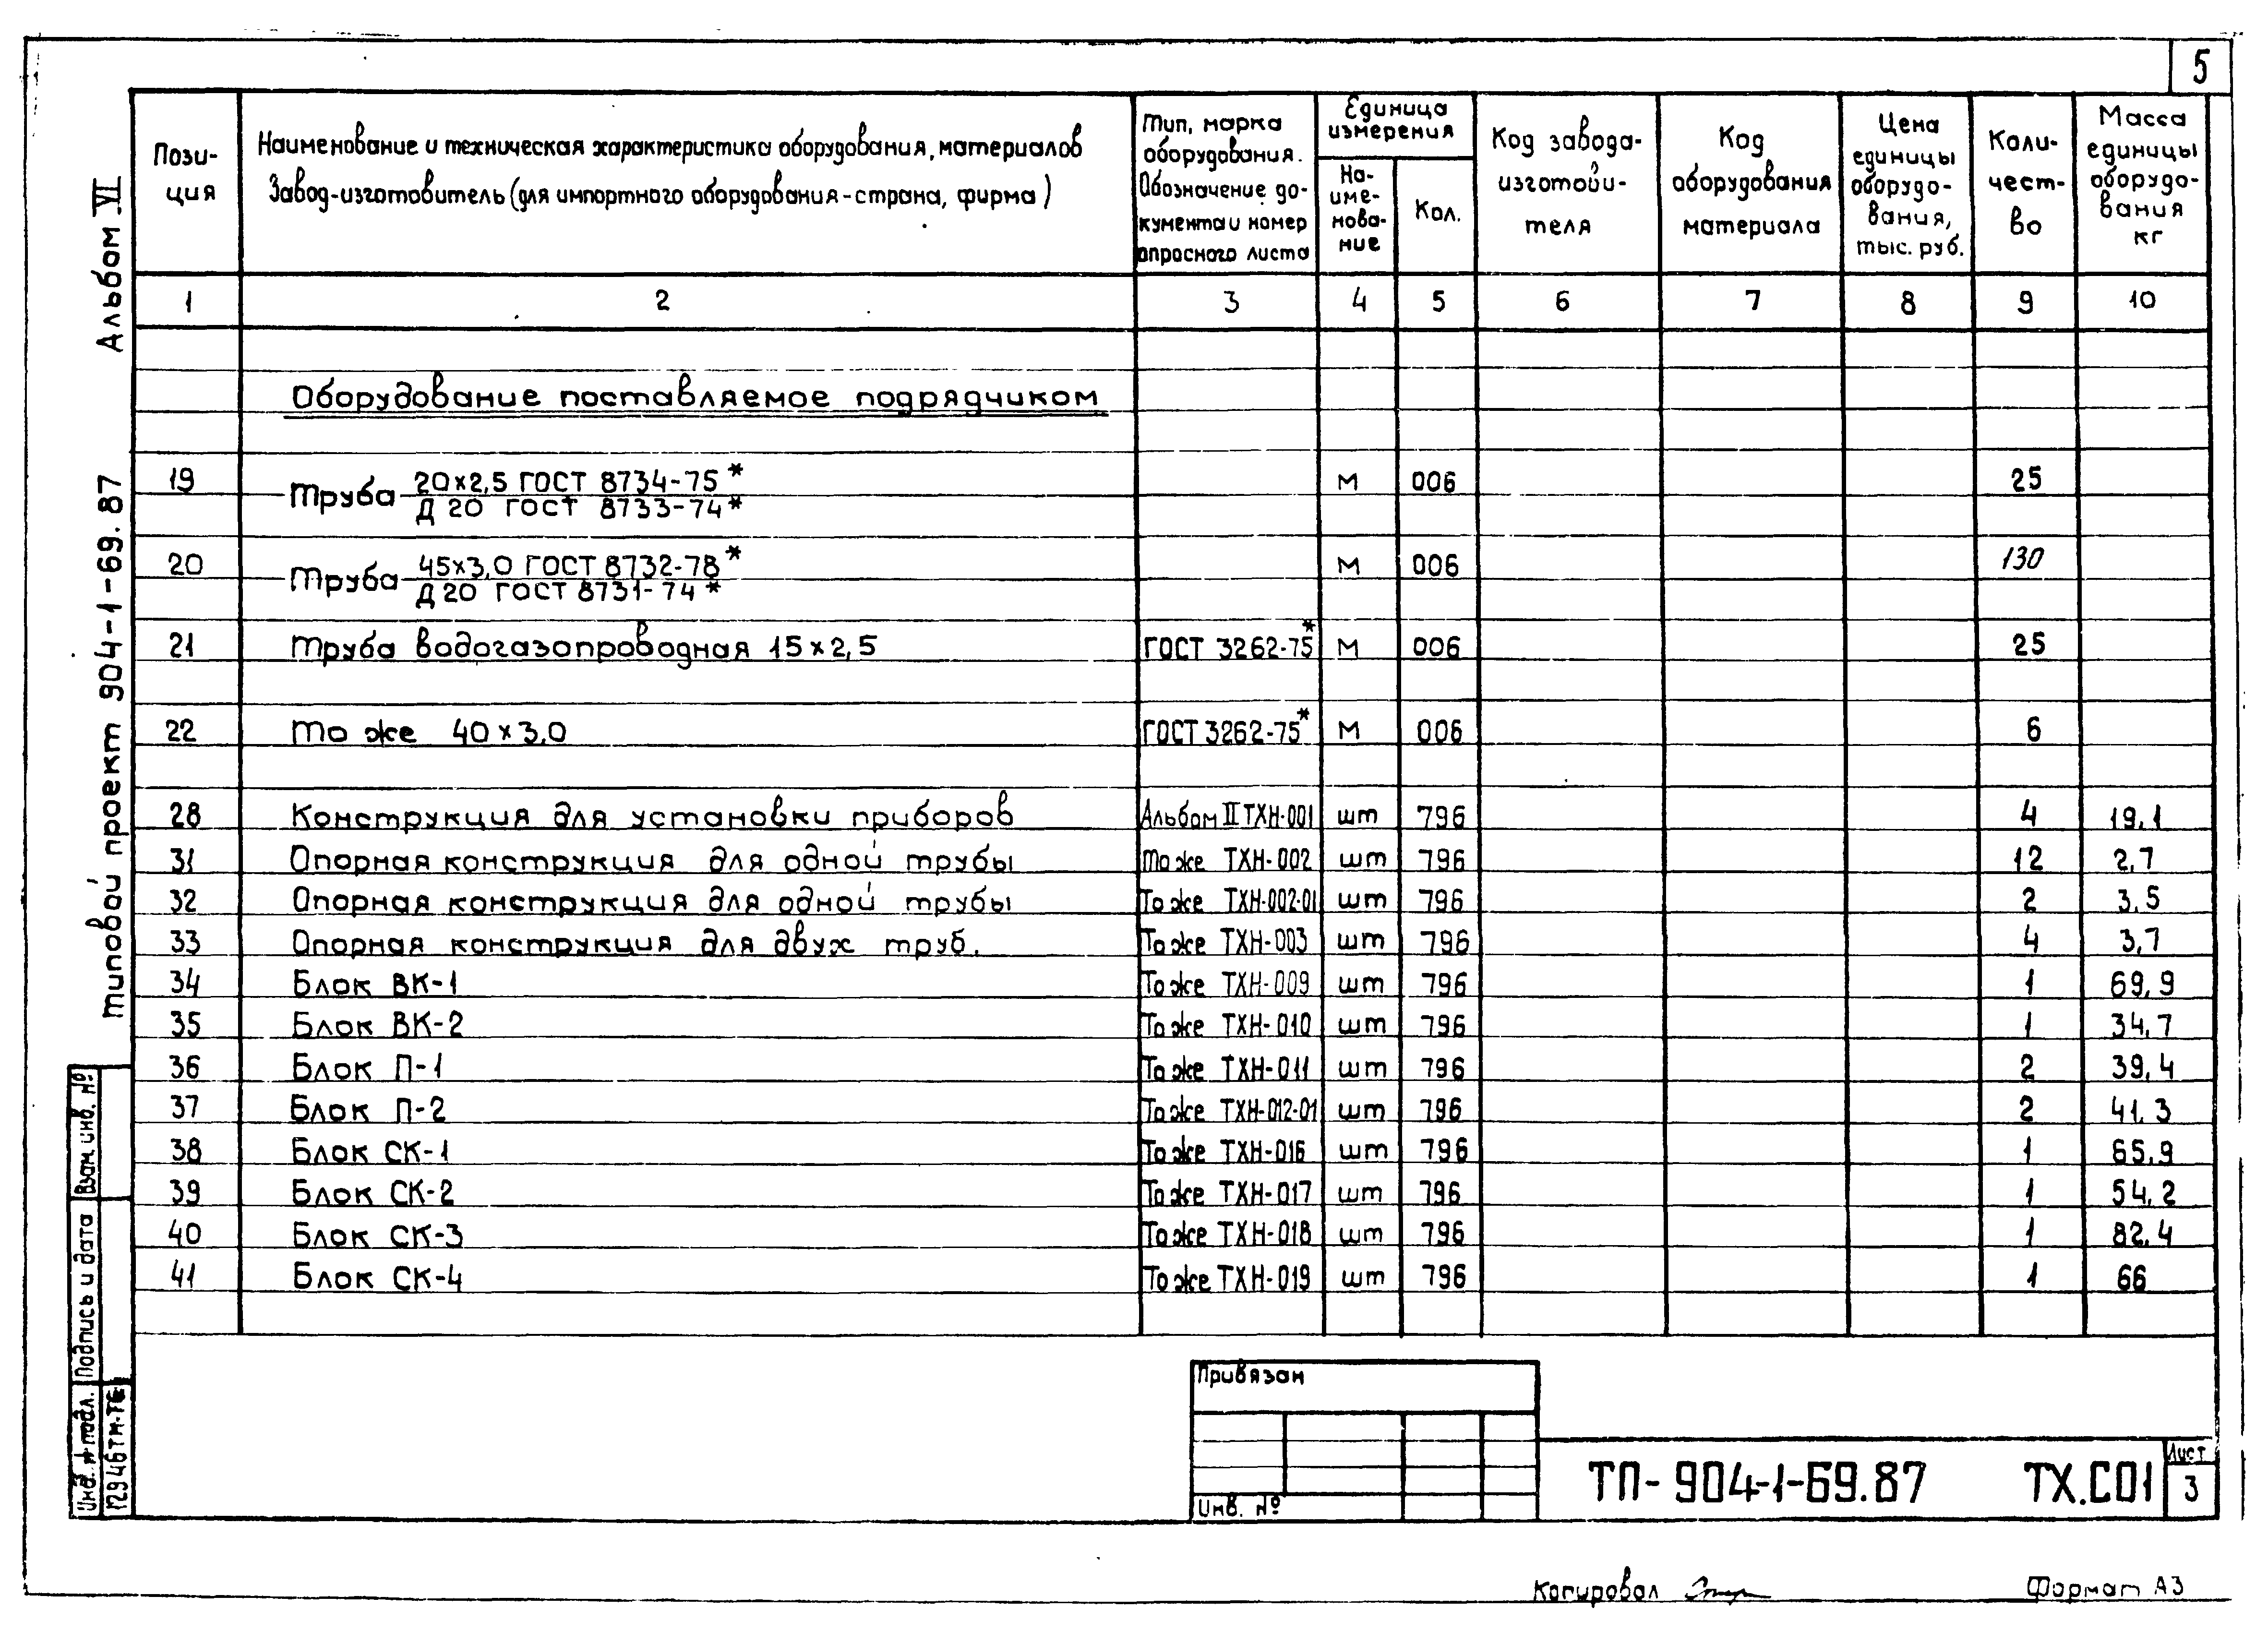 5
Альбом VI
типовой проект 904-1-69.87
Пози-
ция
Наименование и техническая характеристика оборудования, материалов
Завод-изготовитель (для импортного оборудования-страна, фирма)
Тип, марка
оборудования.
Обозначение до-
кумента и номер
опросного листа
Единица
измерения
На-
име-
нова-
ние
Кол.
Код завода-
изготови-
теля
Код
оборудования
материала
Цена
единицы
оборудо-
вания,
тыс. руб.
Коли-
чест-
во
Масса
единицы
оборудо-
вания
кг
1 2 3 4 5 6 7 8 9 10
Оборудование поставляемое подрядчиком
19 Труба 20×2,5 ГОСТ 8734-75* м 006 25
Д 20 ГОСТ 8733-74*
20 Труба 45×3,0 ГОСТ 8732-78* м 006 130
Д 20 ГОСТ 8731-74*
21 Труба водогазопроводная 15×2,5 ГОСТ 3262-75* м 006 25
22 То же 40×3,0 ГОСТ 3262-75* м 006 6
28 Конструкция для установки приборов Альбом II ТХН-001 шт 796 4 19,1
31 Опорная конструкция для одной трубы То же ТХН-002 шт 796 12 2,7
32 Опорная конструкция для одной трубы То же ТХН-002-01 шт 796 2 3,5
33 Опорная конструкция для двух труб. То же ТХН-003 шт 796 4 3,7
34 Блок ВК-1 То же ТХН-009 шт 796 1 69,9
35 Блок ВК-2 То же ТХН-010 шт 796 1 34,7
36 Блок П-1 То же ТХН-011 шт 796 2 39,4
37 Блок П-2 То же ТХН-012-01 шт 796 2 41,3
38 Блок СК-1 То же ТХН-016 шт 796 1 65,9
39 Блок СК-2 То же ТХН-017 шт 796 1 54,2
40 Блок СК-3 То же ТХН-018 шт 796 1 82,4
41 Блок СК-4 То же ТХН-019 шт 796 1 66
Взам. инв. №
Подпись и дата
Инв. № подл.
12946тм-т6
Привязан
Инв. №
ТП-904-1-69.87 ТХ.С01
Лист
3
Копировал
Формат А3